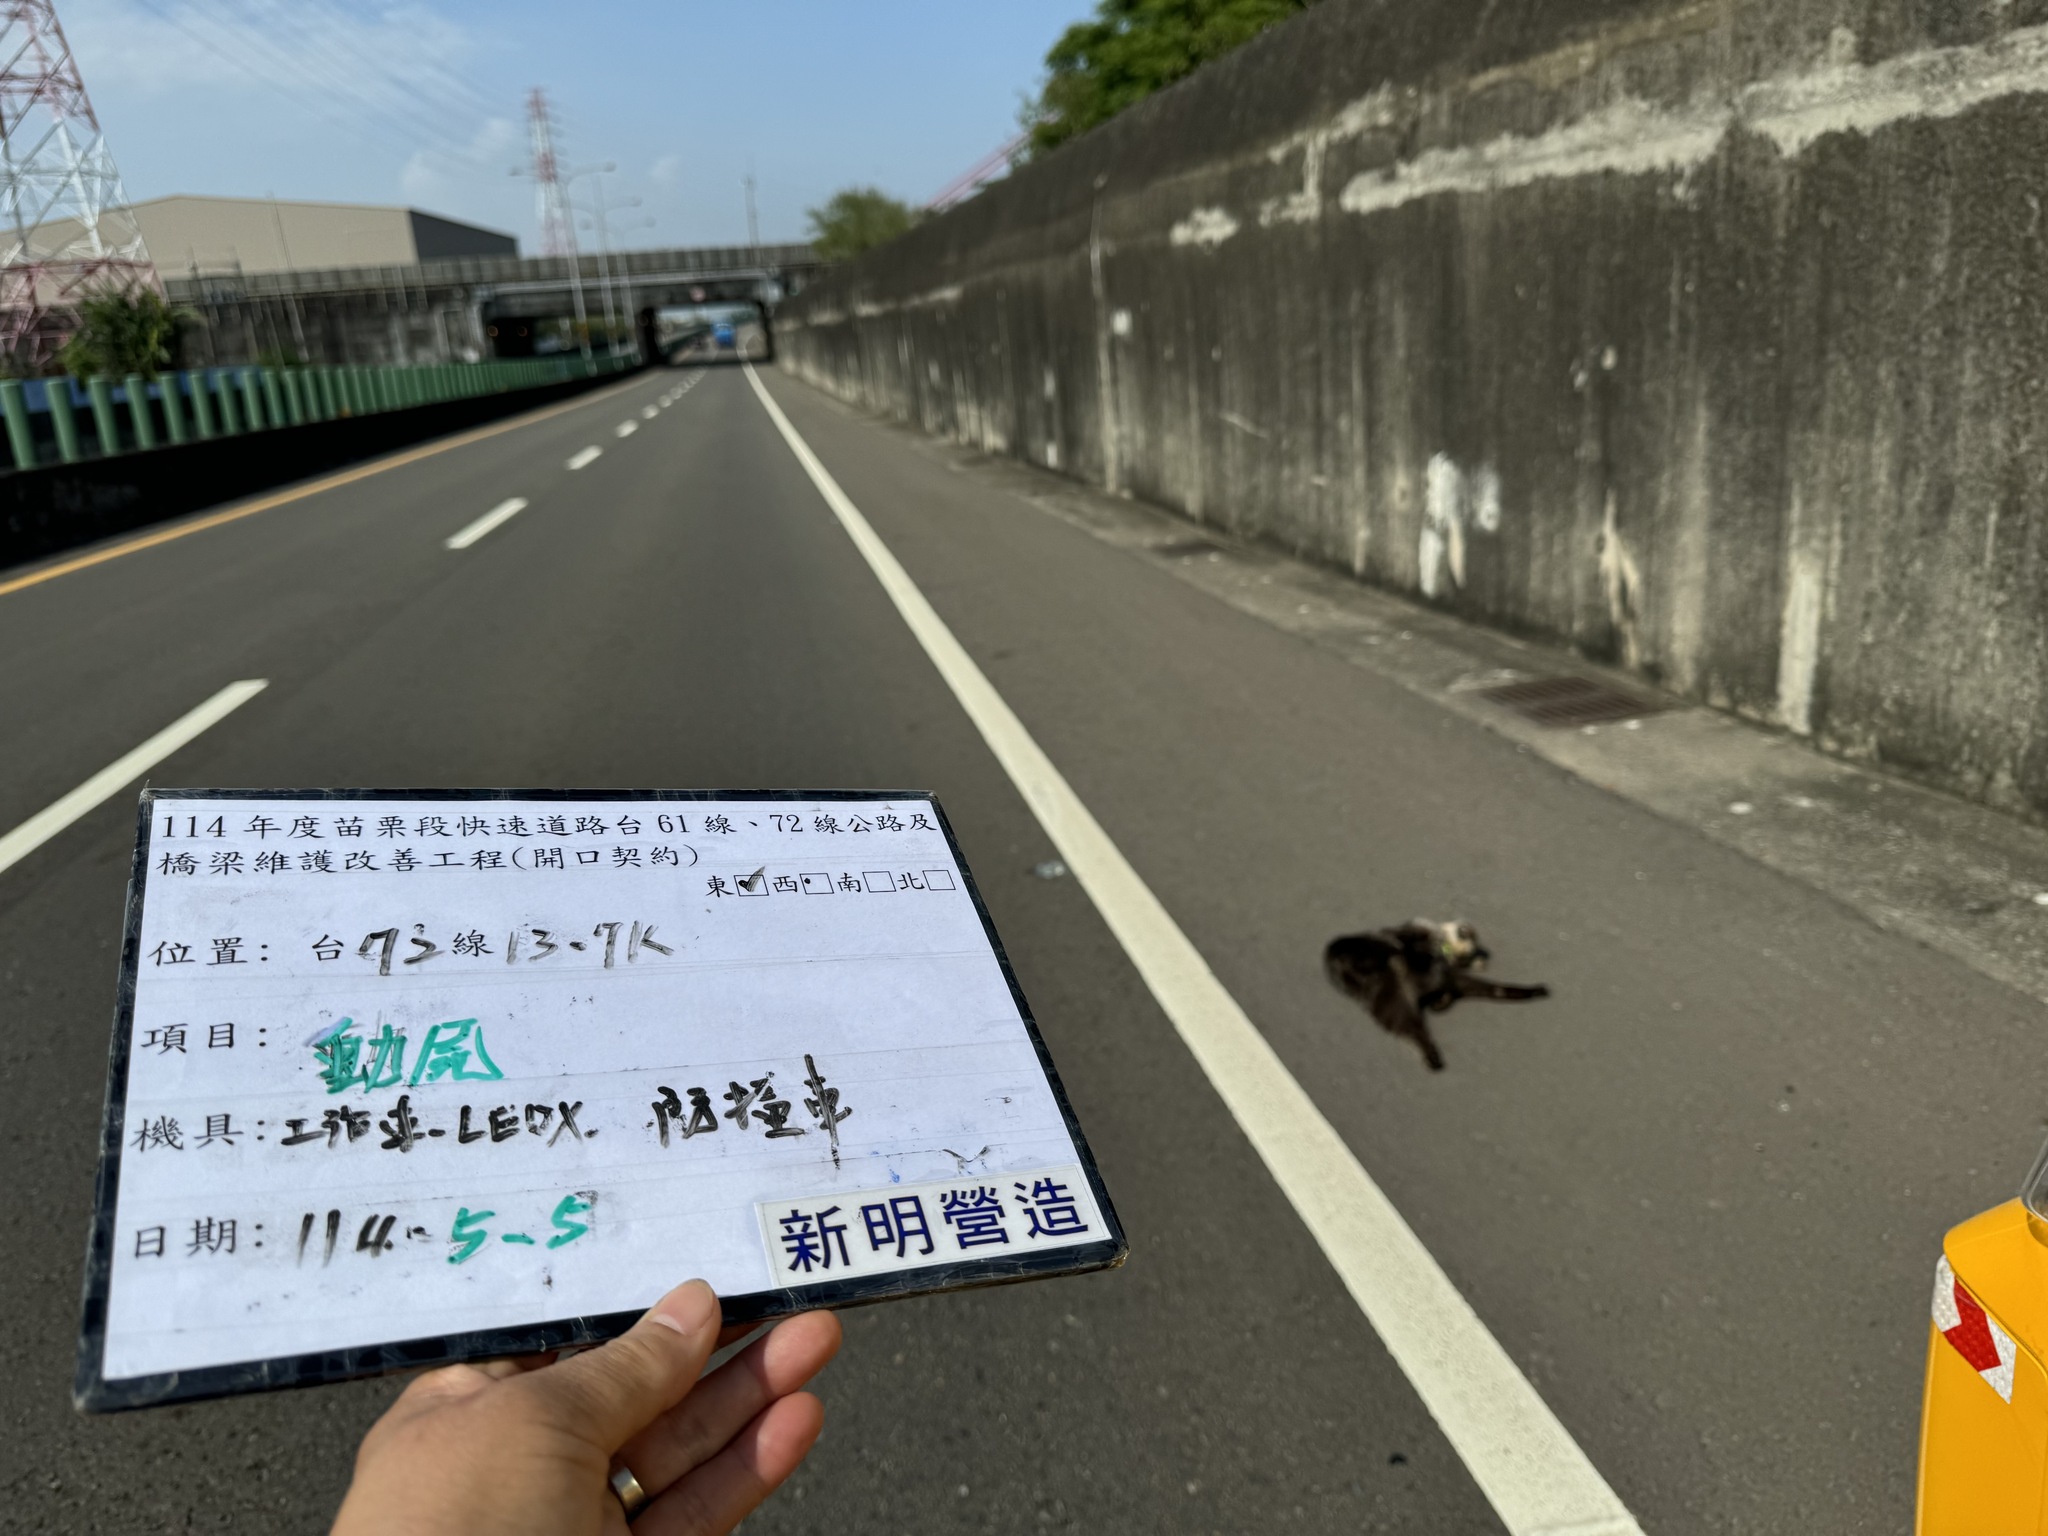 114 年度苗栗段快速道路台 61 線、72 線公路及
橋梁維護改善工程(開口契約)
東☑西☐南☐北☐
位置: 台72線13.7K
項目: 動屍
機具: 工作車.LEDX. 防撞車
日期: 114.-5-5
新明營造